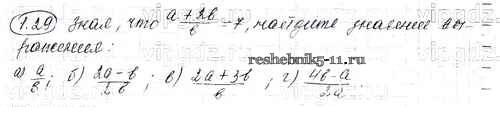 1.29) Зная, что (a+2b)/b=7, найдите значение вы-
ражения:
а) a/b; б) (2a-b)/2b; в) (2a+3b)/b; г) (4b-a)/2a.
reshebnik5-11.ru